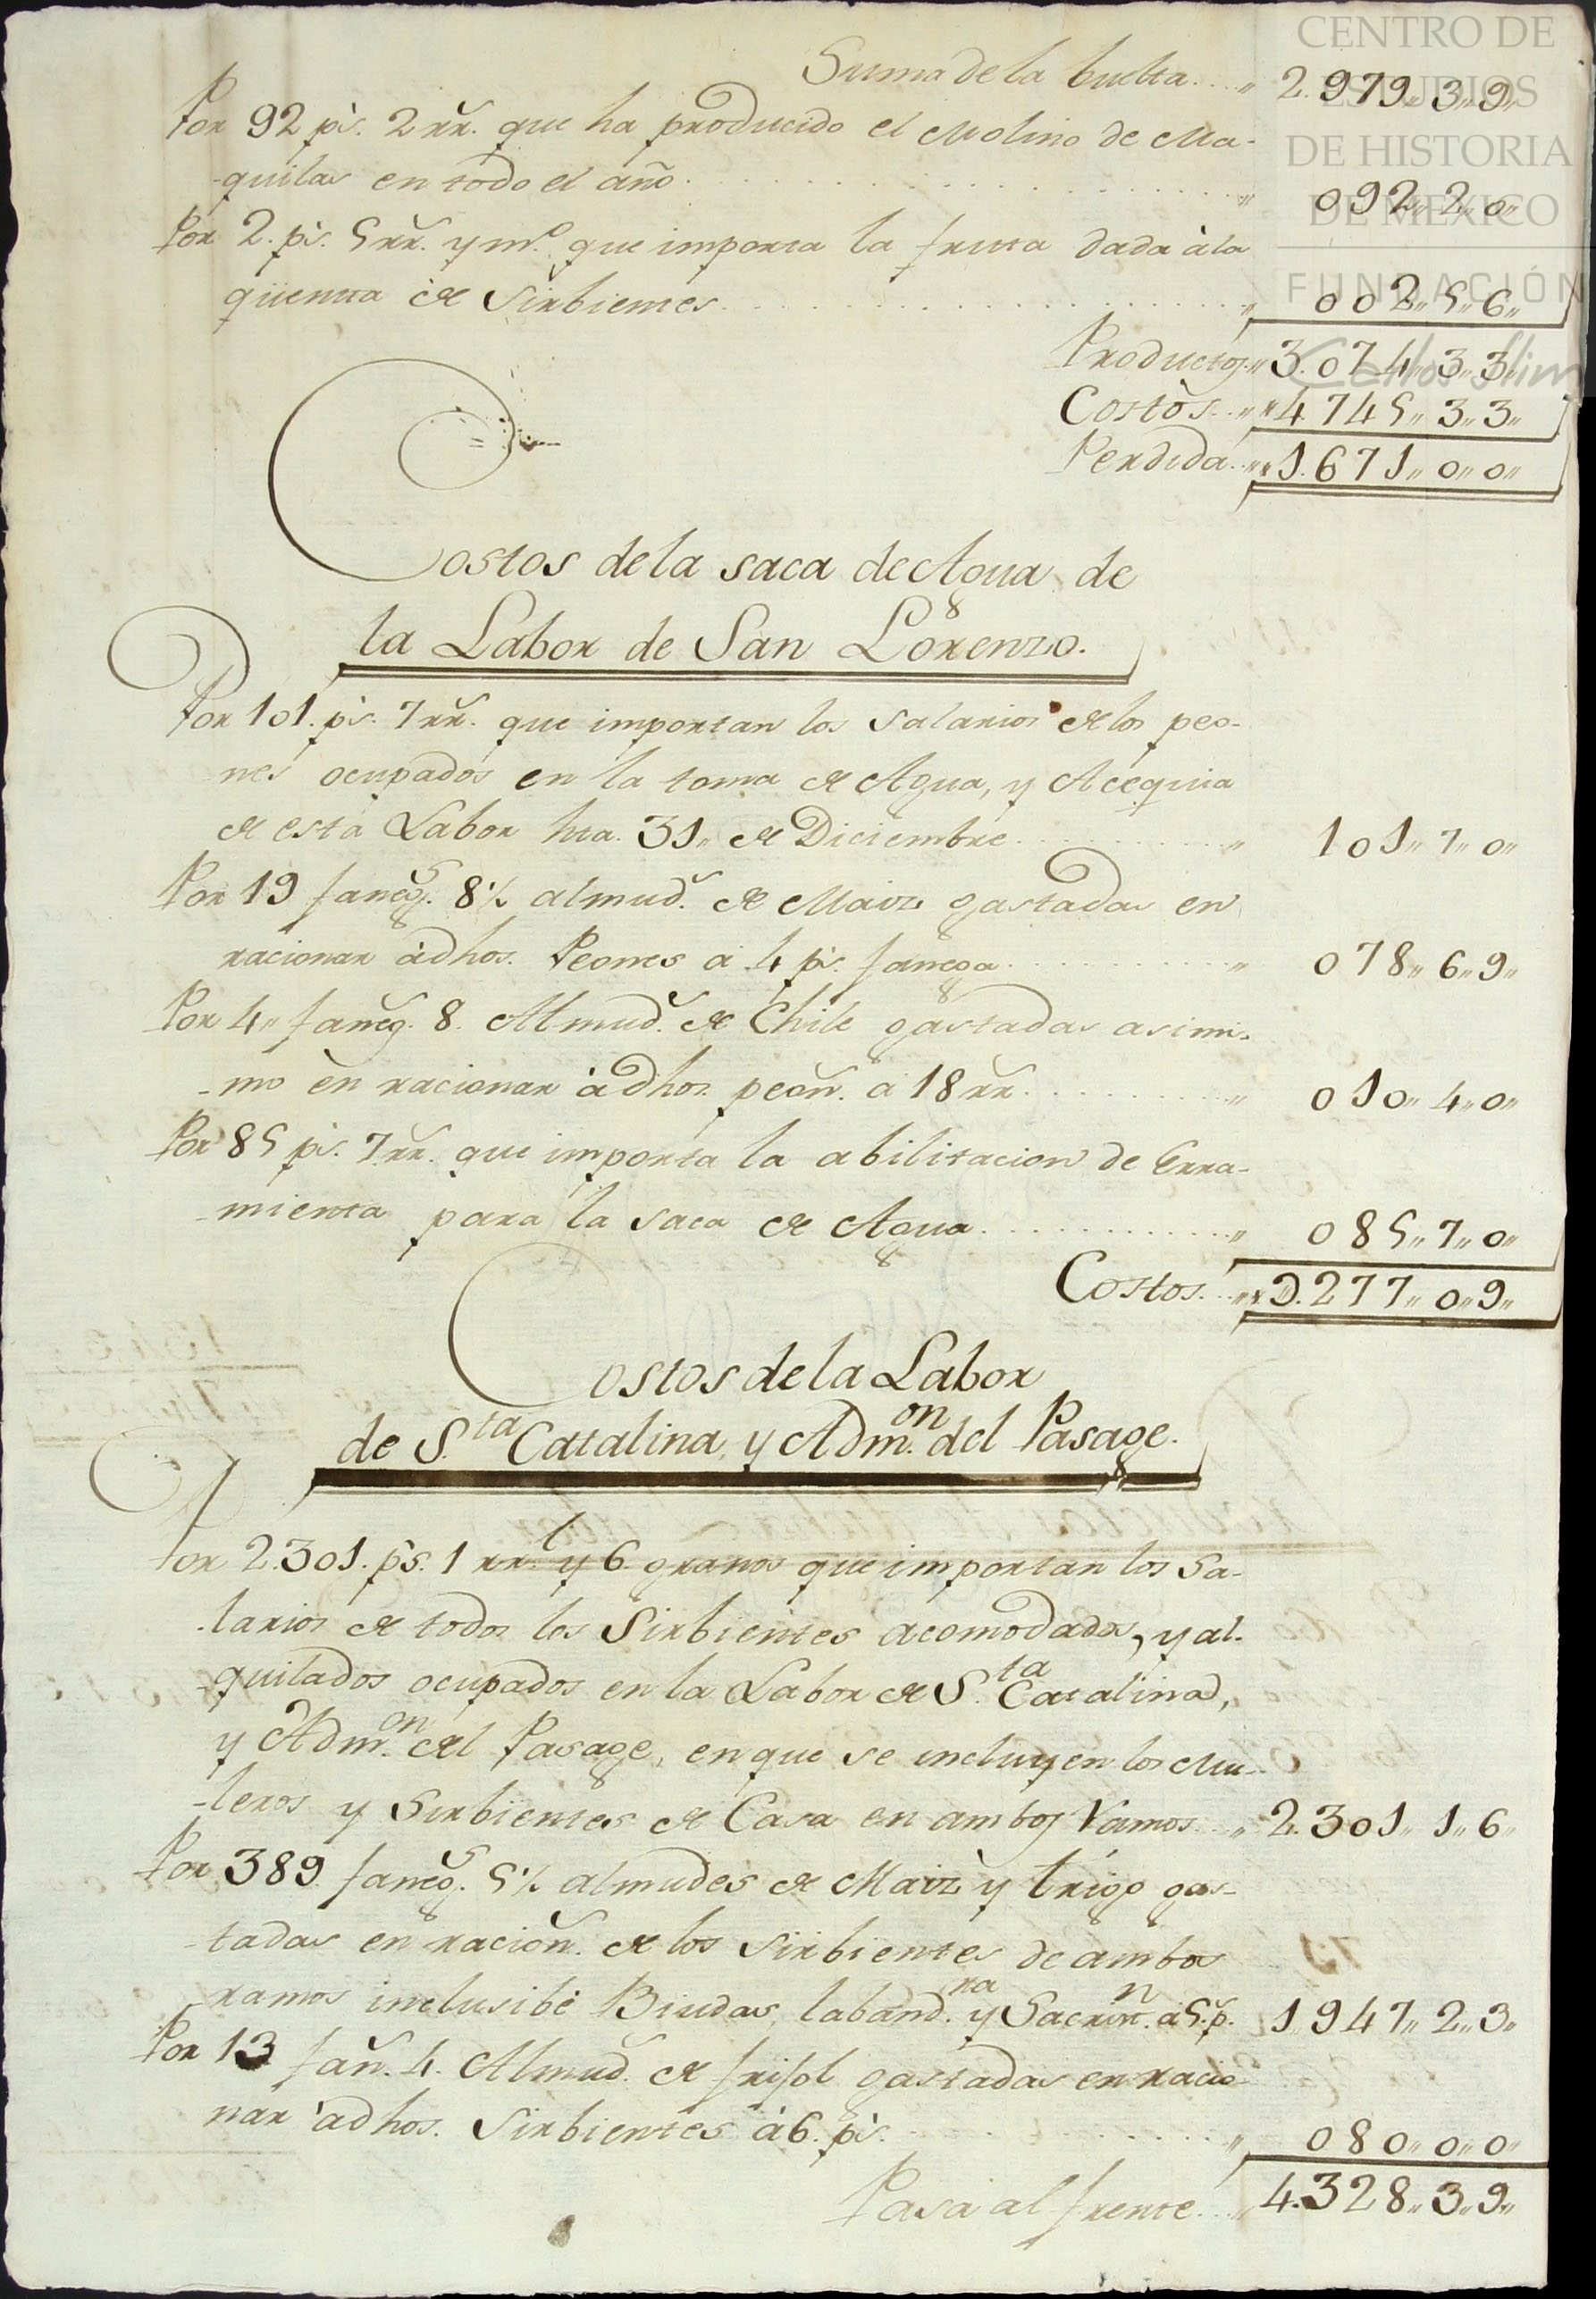 CENTRO DE
ESTUDIOS
DE HISTORIA
DE MÉXICO
FUNDACIÓN
Carlos Slim
Suma de la buelta.... 2.979,, 3,, 9,,
Por 92 p.s 2 rr.s que ha producido el Molino de Ma-
-quilas en todo el año. . . . . 092,, 2,, 0,,
Por 2. p.s 5 rr.s y m.o que importa la fruta dada à la
quenta de Sirbientes. . . . . 002,, 5,, 6,,
Productos.,, 3.074,, 3,, 3,,
Costos. ,, 4.745,, 3,, 3,,
Perdida. ,, 1.671,, 0,, 0,,
Costos de la saca de Agua de
la Labor de San Lorenzo.
Por 101. p.s 7 rr.s que importan los Salarios de los peo-
nes ocupados en la toma de Agua, y Acequia
de esta Labor hta. 31,, de Diciembre. . . . . 101,, 7,, 0,,
Por 19 faneg.s 8½ almud.s de Maiz gastadas en
racionar àdhos. Peones a 4 p.s fanega. . . . . 078,, 6,, 9,,
Por 4,, faneg.s 8. Almud.s de Chile gastadas asimi-
-mo en racionar àdhos. peon.s a 18 rr.s . . . . 010,, 4,, 0,,
Por 85 p.s 7 rr.s que importa la abilitacion de Erra-
-mienta para la saca de Agua. . . . . 085,, 7,, 0,,
Costos. ,, 0.277,, 0,, 9,,
Costos de la Labor
de S.ta Catalina, y Adm.on del Pasage.
Por 2.301. p.s 1 rr.l y 6 granos que importan los Sa-
-larios de todos los Sirbientes acomodados, y al-
-quilados ocupados en la Labor de S.ta Catalina,
y Adm.on del Pasage, en que se incluyen los Mu-
-leros y Sirbientes de Casa en ambos Ramos. ,, 2.301,, 1,, 6,,
Por 389 faneg.s 5½ almudes de Maiz y trigo gas-
-tadas en racion.s de los Sirbientes de ambos
ramos inclusibe Biudas, laband.ra y Sacrin.n à 5. p. 1.947,, 2,, 3,,
Por 13 fan.s 4. Almud.s de frisol gastadas en racio-
nar àdhos. Sirbientes à 6. p.s . . . . 080,, 0,, 0,,
Pasa al frente. ,, 4.328,, 3,, 9,,